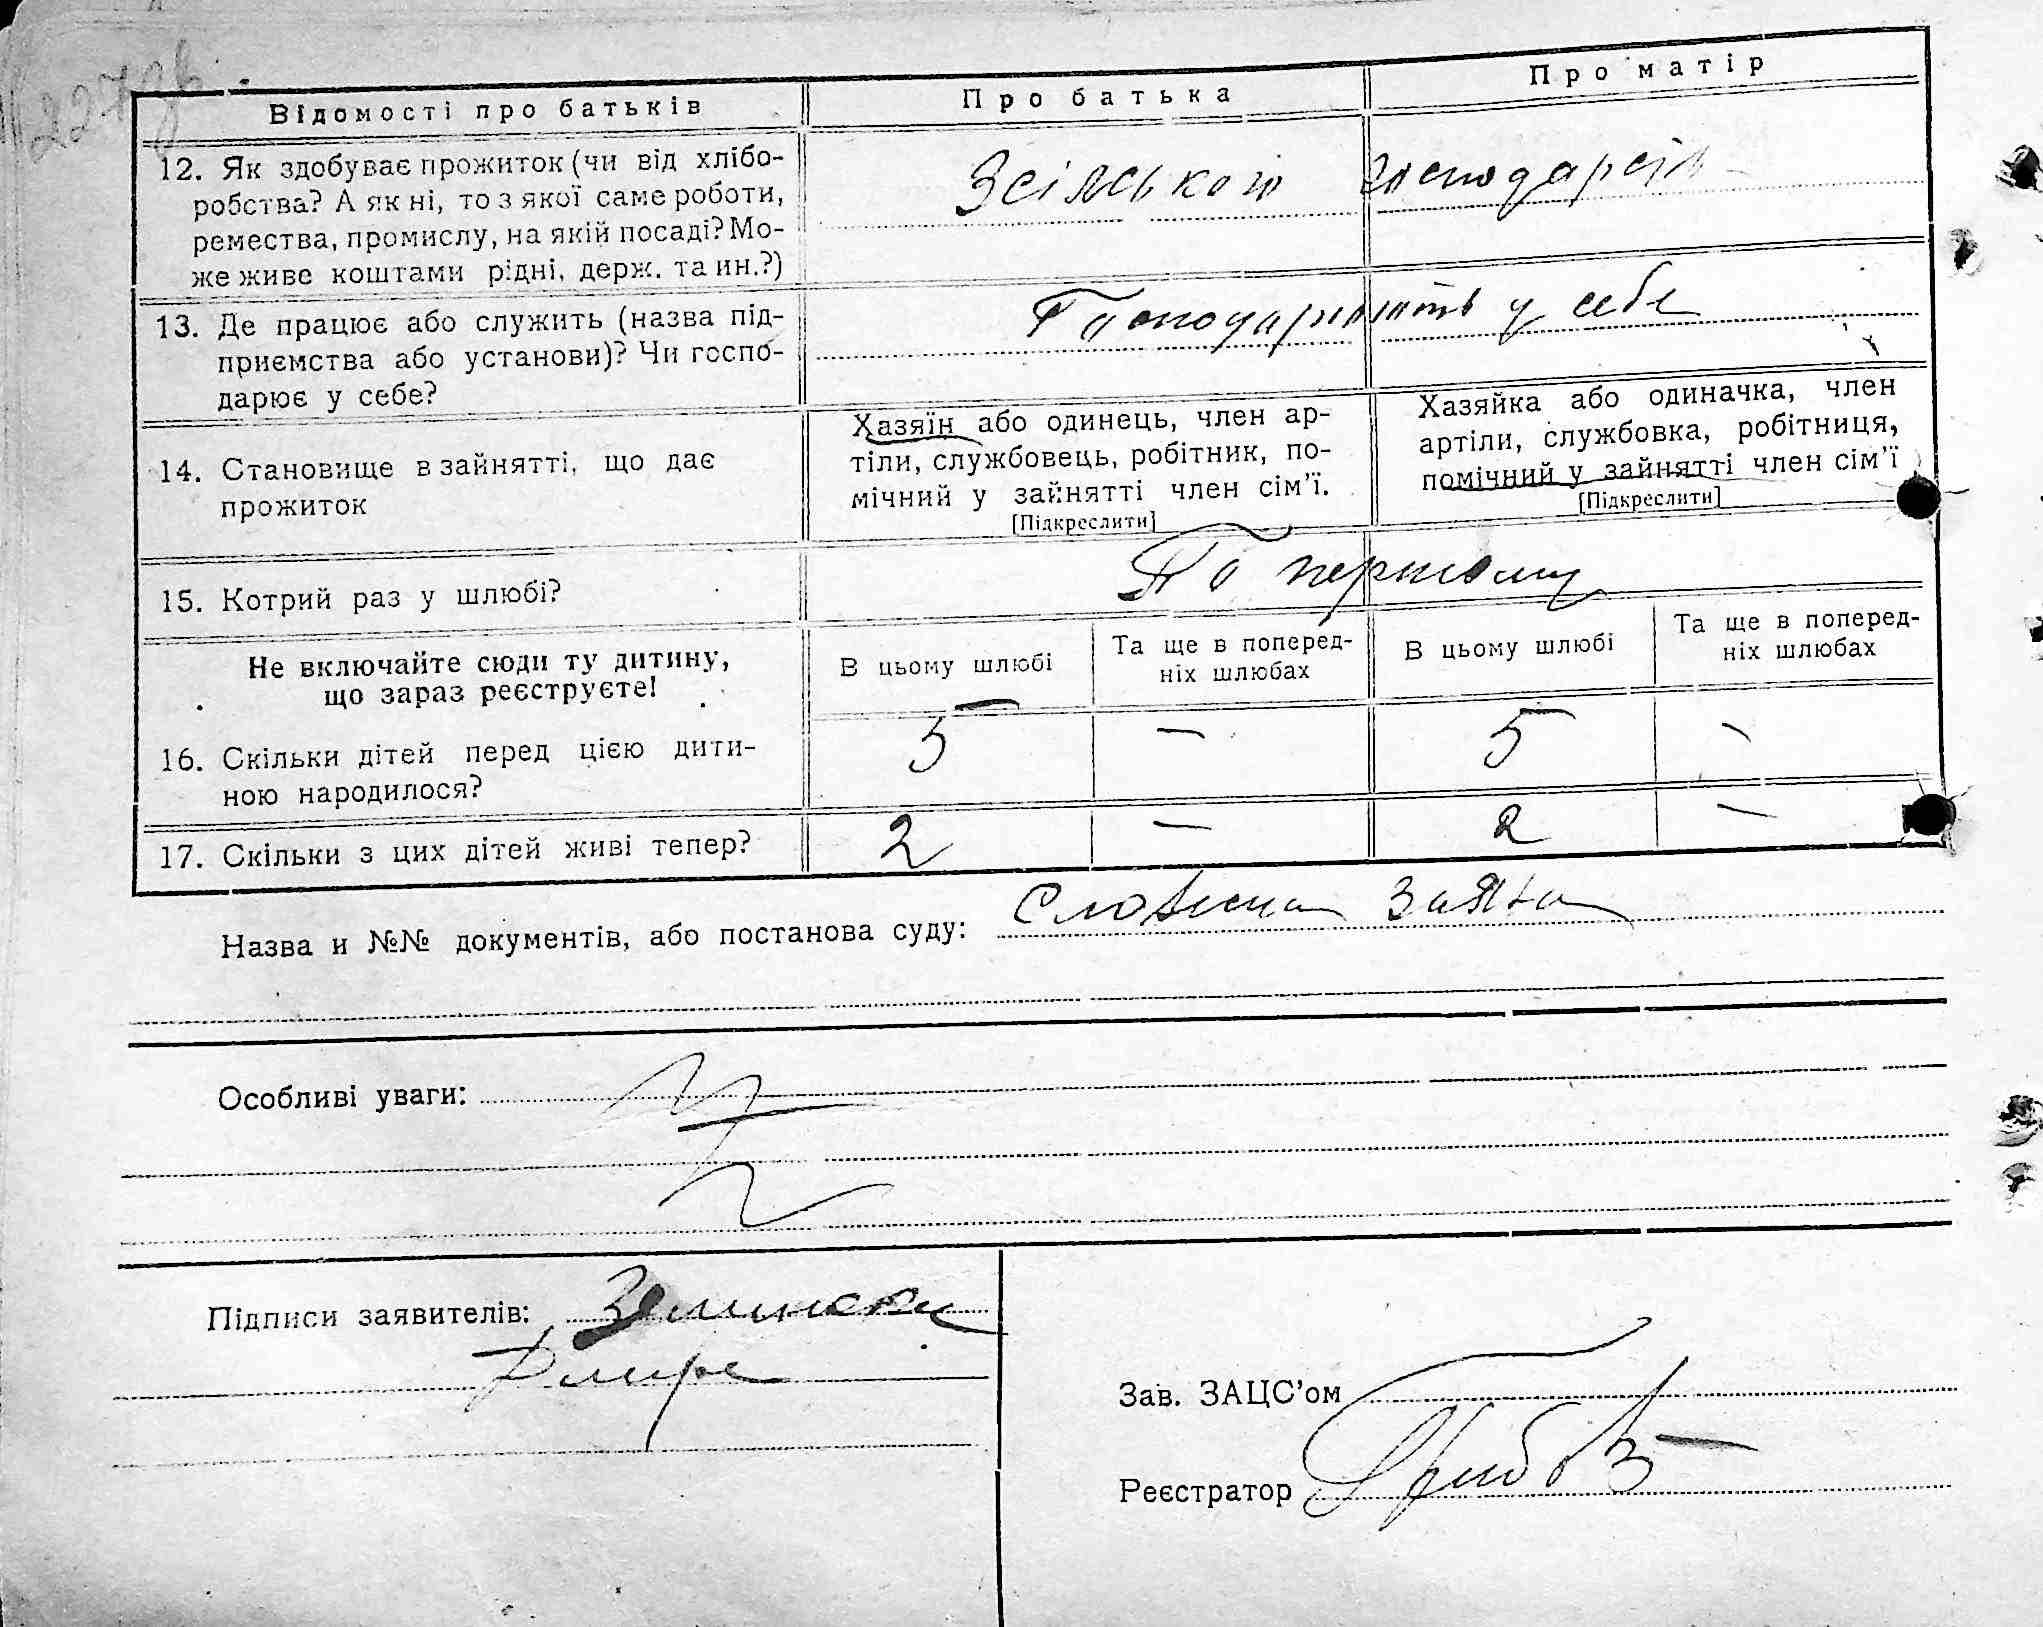 227зв
Відомості про батьків
Про батька
Про матір
12. Як здобуває прожиток (чи від хлібо-
робства? А як ні, то з якої саме роботи,
ремества, промислу, на якій посаді? Мо-
же живе коштами рідні, держ. та ин.?)
Зсільского господарств
13. Де працює або служить (назва під-
приємства або установи)? Чи госпо-
дарює у себе?
Господарюють у себе
14. Становище в зайнятті, що дає
прожиток
Хазяїн або одинець, член ар-
тіли, службовець, робітник, по-
мічний у зайнятті член сім'ї.
[Підкреслити]
Хазяйка або одиначка, член
артіли, службовка, робітниця,
помічний у зайнятті член сім'ї
[Підкреслити]
15. Котрий раз у шлюбі?
По первому
Не включайте сюди ту дитину,
що зараз реєструєте!
В цьому шлюбі
Та ще в поперед-
ніх шлюбах
В цьому шлюбі
Та ще в поперед-
ніх шлюбах
16. Скільки дітей перед цією дити-
ною народилося?
5 — 5 —
17. Скільки з цих дітей живі тепер?
2 — 2 —
Назва и №№ документів, або постанова суду: Словесна заява
Особливі уваги:
Підписи заявителів:
Зав. ЗАЦС'ом
Реєстратор